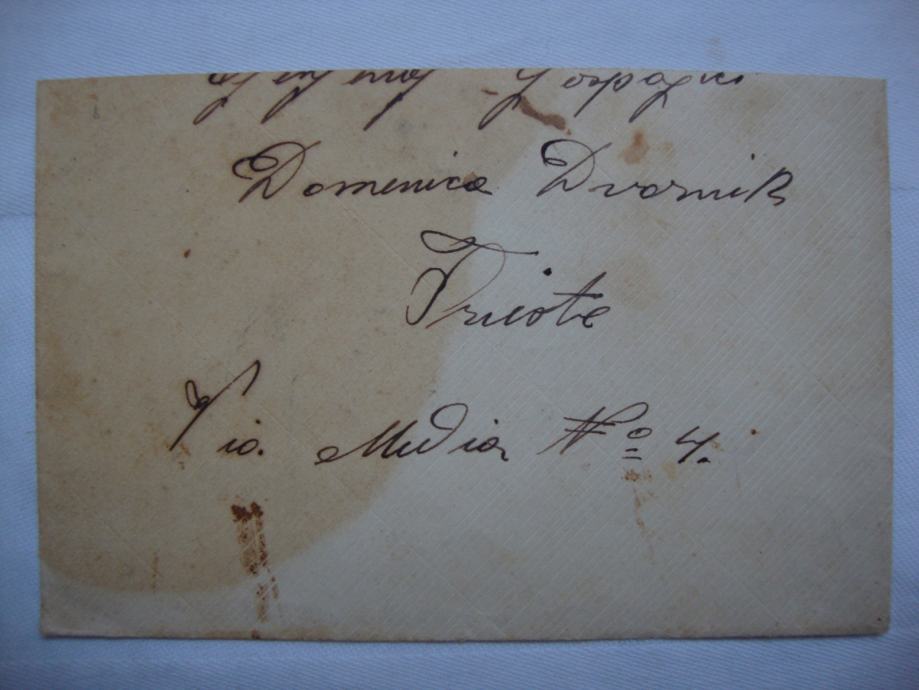 gospogici
Domenica Dvornik
Trieste
Via Media Nº 4.